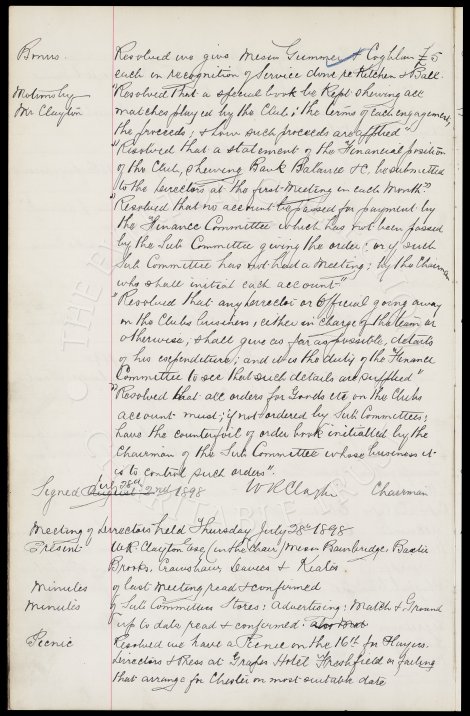 Bonus. Resolved we give Messrs Gummer & Coghlan £5
each in recognition of Service done re Kitchen & Ball.
Motions by "Resolved that a special book be Kept shewing all
Mr Clayton matches played by the Club; the terms of each engagement,
the proceeds; & how such proceeds are applied"
"Resolved that a statement of the Financial position
of the Club, shewing Bank Ballance &c, be submitted
to the Directors at the first Meeting in each Month"
"Resolved that no account be passed for payment by
the Finance Committee which has not been passed
by the Sub Committee giving the order: or if such
Sub Committee has not had a Meeting; by the Chairman
who shall initial each account"
"Resolved that any Director or Official going away
on the Clubs business, either in charge of the team or
otherwise, shall give as far as possible, details
of his expenditure; and it is the duty of the Finance
Committee to see that such details are supplied"
"Resolved that all orders for Goods etc on the Clubs
account must; if not ordered by Sub Committees;
have the counterfoil of order book initialled by the
Chairman of the Sub Committee whose business it
is to control such orders".
Signed August 2nd 1898 W R Clayton Chairman
Meeting of Directors held Thursday July 28th 1898
Present W.R. Clayton Esq (in the Chair) Messrs Bainbridge, Baxter
Brooks, Crawshaw, Davies & Keates
Minutes of last Meeting read & confirmed
Minutes of Sub Committees Stores: Advertising: Match & Ground
up to date read & confirmed.
Picnic Resolved we have a Picnic on the 16th for Players.
Directors & Press at Grapes Hotel Freshfield or failing
that arrange for Chester on most suitable date